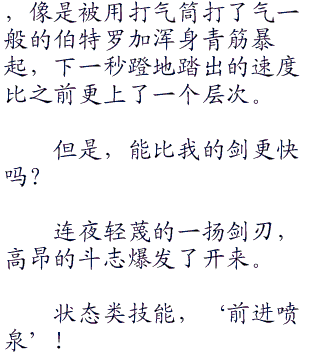 ，像是被用打气筒打了气一
般的伯特罗加浑身青筋暴
起，下一秒蹬地踏出的速度
比之前更上了一个层次。
但是，能比我的剑更快
吗？
连夜轻蔑的一扬剑刃，
高昂的斗志爆发了开来。
状态类技能，‘前进喷
泉’！